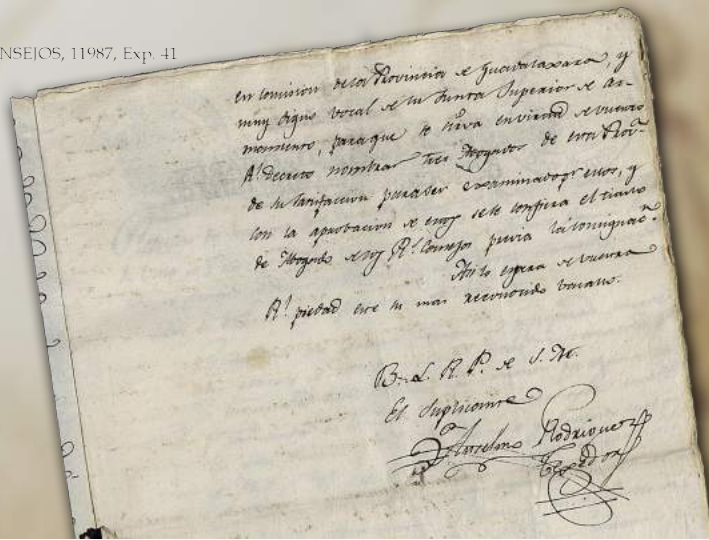 NSEJOS, 11987, Exp. 41
en comision de esa Provincia de Guadalaxara, y
muy digno vocal de su Junta Superior de Ar-
mamento, para que se sirva en virtud de vuestro
Rl. Decreto nombrar tres Abogados de esta Prov.a
de su satisfaccion para ser examinado pr. estos, y
con la aprobacion de estos se le confiera el titulo
de Abogado de los Rs. Consejos previa la consignac.n
Asi lo espera de vuestra
Rl. piedad este su mas reconocido vasallo.
B. L. R. P. de V. M.
El Suplicante
Anselmo Rodriguez
Texedor